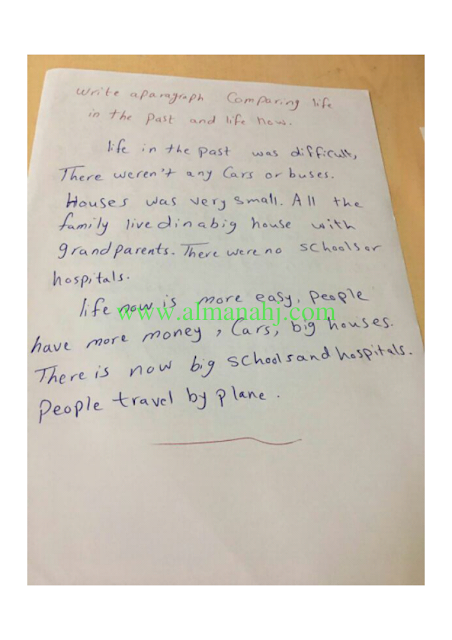 write a paragraph Comparing life
in the past and life now.
life in the past was difficult,
There weren't any Cars or buses.
Houses was very small. All the
family lived in a big house with
grandparents. There were no schools or
hospitals.
life now is more easy, people
www.almanahj.com
have more money, Cars, big houses.
There is now big schools and hospitals.
people travel by plane.